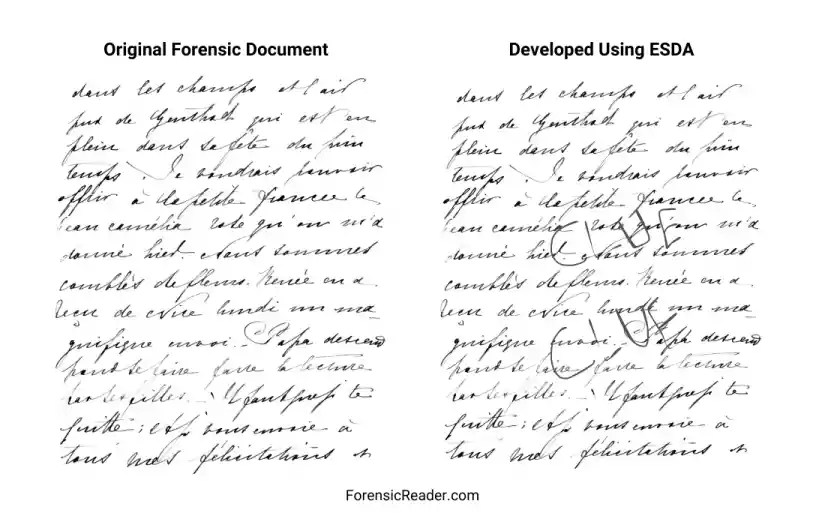 Original Forensic Document
dans les champs et l'air
pur de Genthod qui est en
plein dans sa fête du prin
temps. Je voudrais pouvoir
offrir à la petite fiancée le
beau camélia rose qu'on m'a
donné hier. Nous sommes
comblés de fleurs. Renée en a
reçu de Nice lundi un ma
gnifique envoi. Papa descend
pour se faire faire la lecture
par les filles.
quitte; et j' vous envoie à
tous mes félicitations
Developed Using ESDA
dans les champs et l'air
pur de Genthod qui est en
plein dans sa fête du prin
temps. Je voudrais pouvoir
offrir à la petite fiancée le
beau camélia rose qu'on m'a
donné hier. Nous sommes
comblés de fleurs. Renée en a
reçu de Nice lundi un ma
gnifique envoi. Papa descend
pour se faire faire la lecture
par les filles.
quitte; et j' vous envoie à
tous mes félicitations
ForensicReader.com